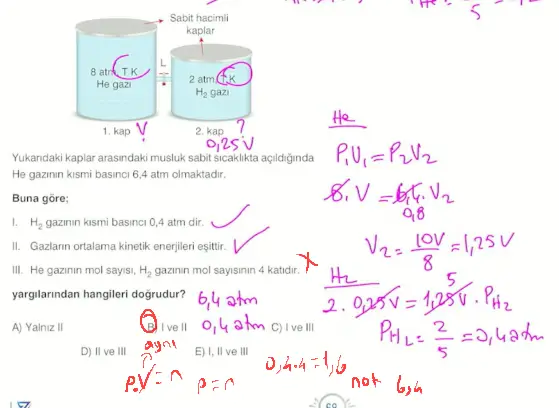 Sabit hacimli
kaplar
8 atm, T K
He gazı
L
2 atm, T K
H₂ gazı
1. kap V
2. kap ?
0,25V
Yukarıdaki kaplar arasındaki musluk sabit sıcaklıkta açıldığında
He gazının kısmi basıncı 6,4 atm olmaktadır.
Buna göre;
I. H₂ gazının kısmi basıncı 0,4 atm dir.
II. Gazların ortalama kinetik enerjileri eşittir.
III. He gazının mol sayısı, H₂ gazının mol sayısının 4 katıdır. X
yargılarından hangileri doğrudur?
6,4 atm
A) Yalnız II B) I ve II 0,4 atm C) I ve III
D) II ve III E) I, II ve III
aynı
P.V = n P = n
0,4.4 = 1,6
not 6,4
He
P₁V₁ = P₂V₂
8.V = 6,4.V₂
0,8
V₂ = 10V/8 = 1,25V
H₂
5
2.0,25V = 1,25V.PH₂
PH₂ = 2/5 = 0,4 atm
5
68